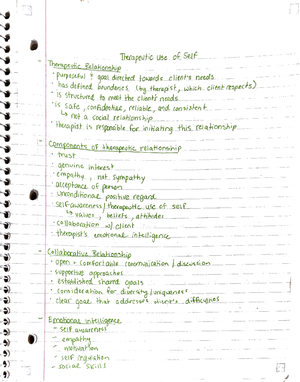 Therapeutic Use of Self
Therapeutic Relationship
• purposeful & goal directed towards client's needs
• has defined boundaries (by therapist, which client respects)
• is structured to meet the client needs
• is safe, confidential, reliable, and consistent
↳ not a social relationship
• therapist is responsible for initiating this relationship
- Components of therapeutic relationship
• trust
• genuine interest
• empathy, not sympathy
• acceptance of person
• unconditional positive regard
• self-awareness/therapeutic use of self
↳ values, beliefs, attitudes
• collaboration w/ client
• therapist's emotional intelligence
- Collaborative Relationship
• open + comfortable communication/discussion
• supportive approaches
• established shared goals
• consideration for diversity/uniqueness
• clear goal that addresses client's difficulties
- Emotional Intelligence
- self awareness
- empathy
- motivation
- self regulation
- social skills